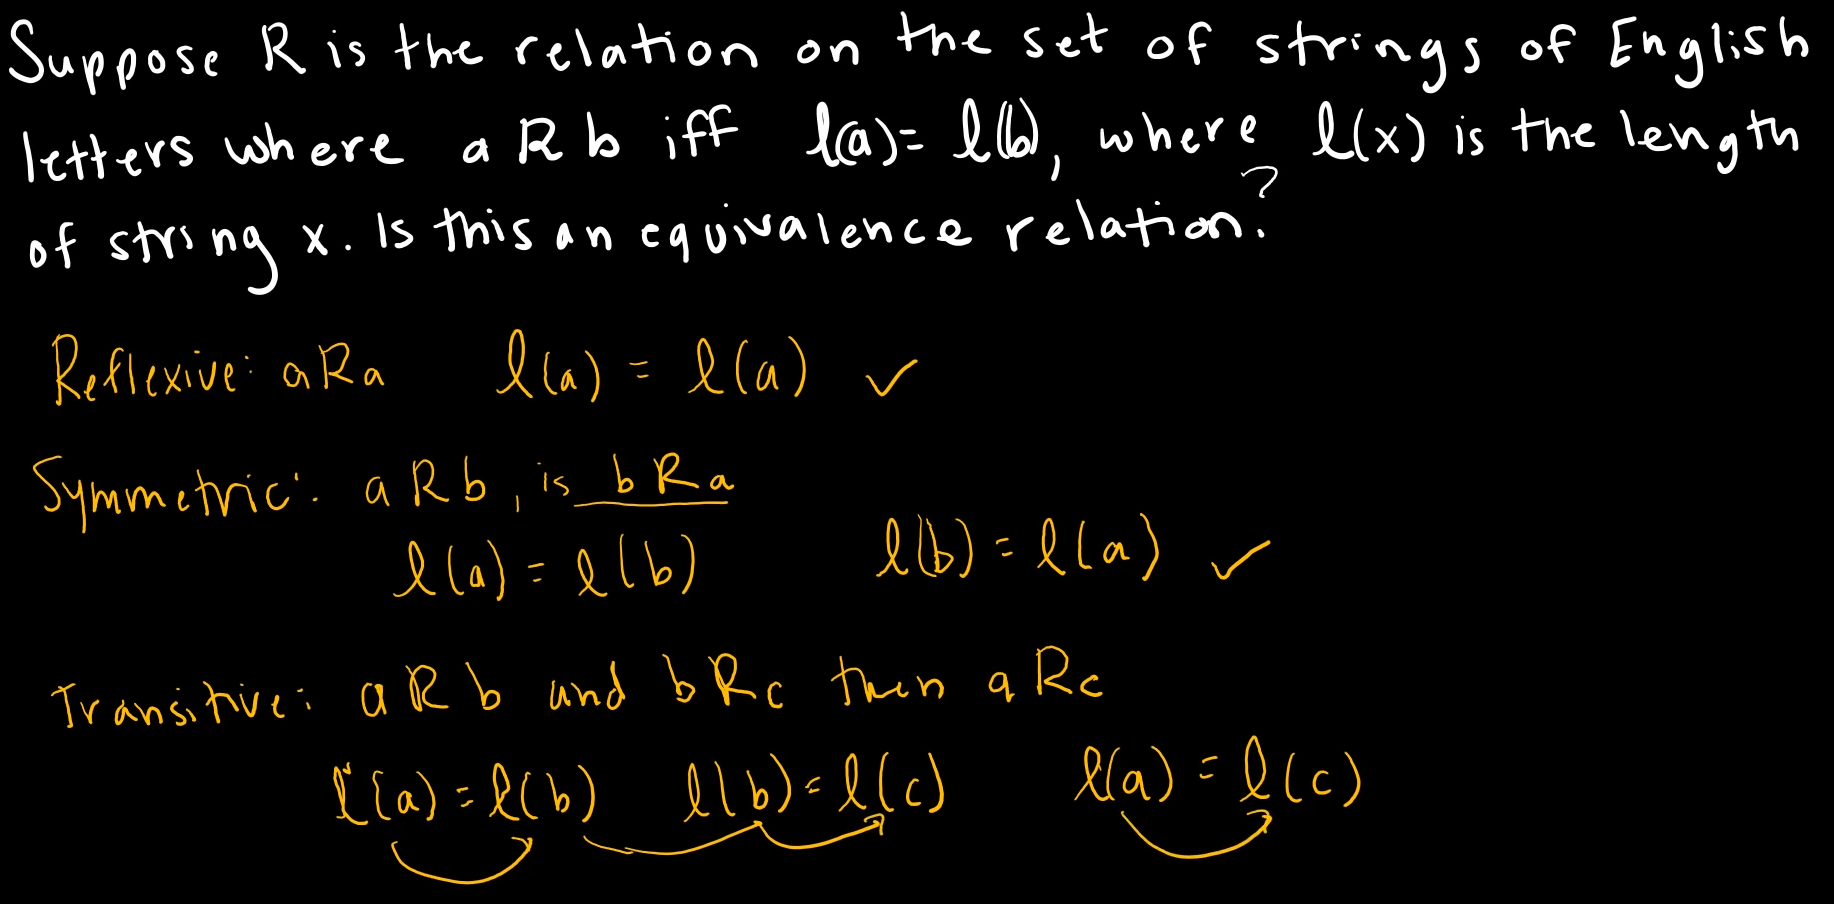 Suppose R is the relation on the set of strings of English
letters where a R b iff l(a) = l(b), where l(x) is the length
of string x. Is this an equivalence relation?
Reflexive: aRa l(a) = l(a) ✓
Symmetric: a R b, is b R a
l(a) = l(b) l(b) = l(a) ✓
Transitive: a R b and b R c then a R c
l(a) = l(b) l(b) = l(c) l(a) = l(c)